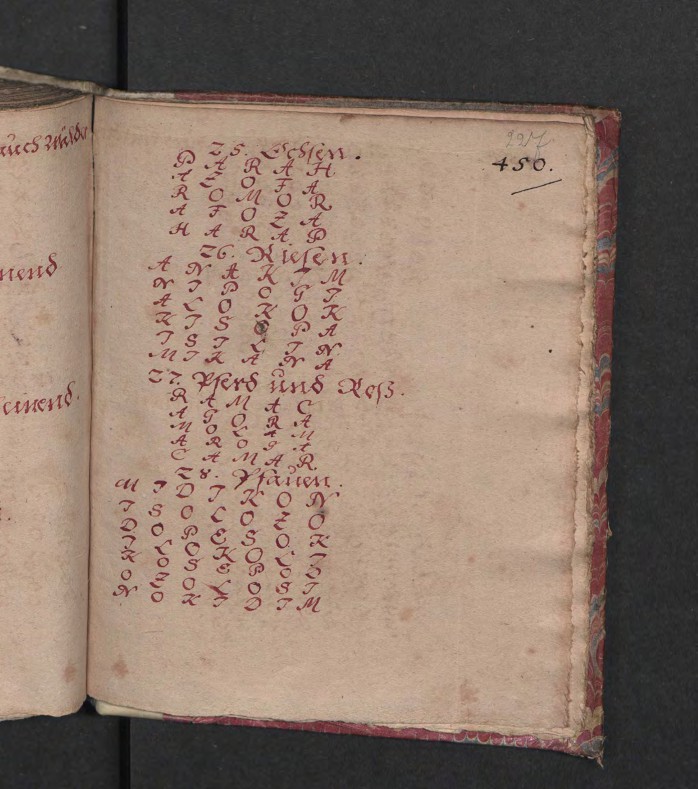 auch Wilder
mend
cinend.
227
450.
25. Echsen.
P A R A H
A Z O F A
R O M O R
A F O Z A
H A R A P
26. Riesen.
A N A K I M
N I P O G I
A L O K O K
K I S O P A
I S I L I N
M I K A N A
27. Pferd und Roß.
R A M A C
A G O R A
M O L O M
A R O G A
C A M A R
28. Pfauen.
M I D I K O N
I S O L O Z O
D O P E S O K
I L O K O L I
K O S E P O D
O Z O L O S I
N O K I D I M